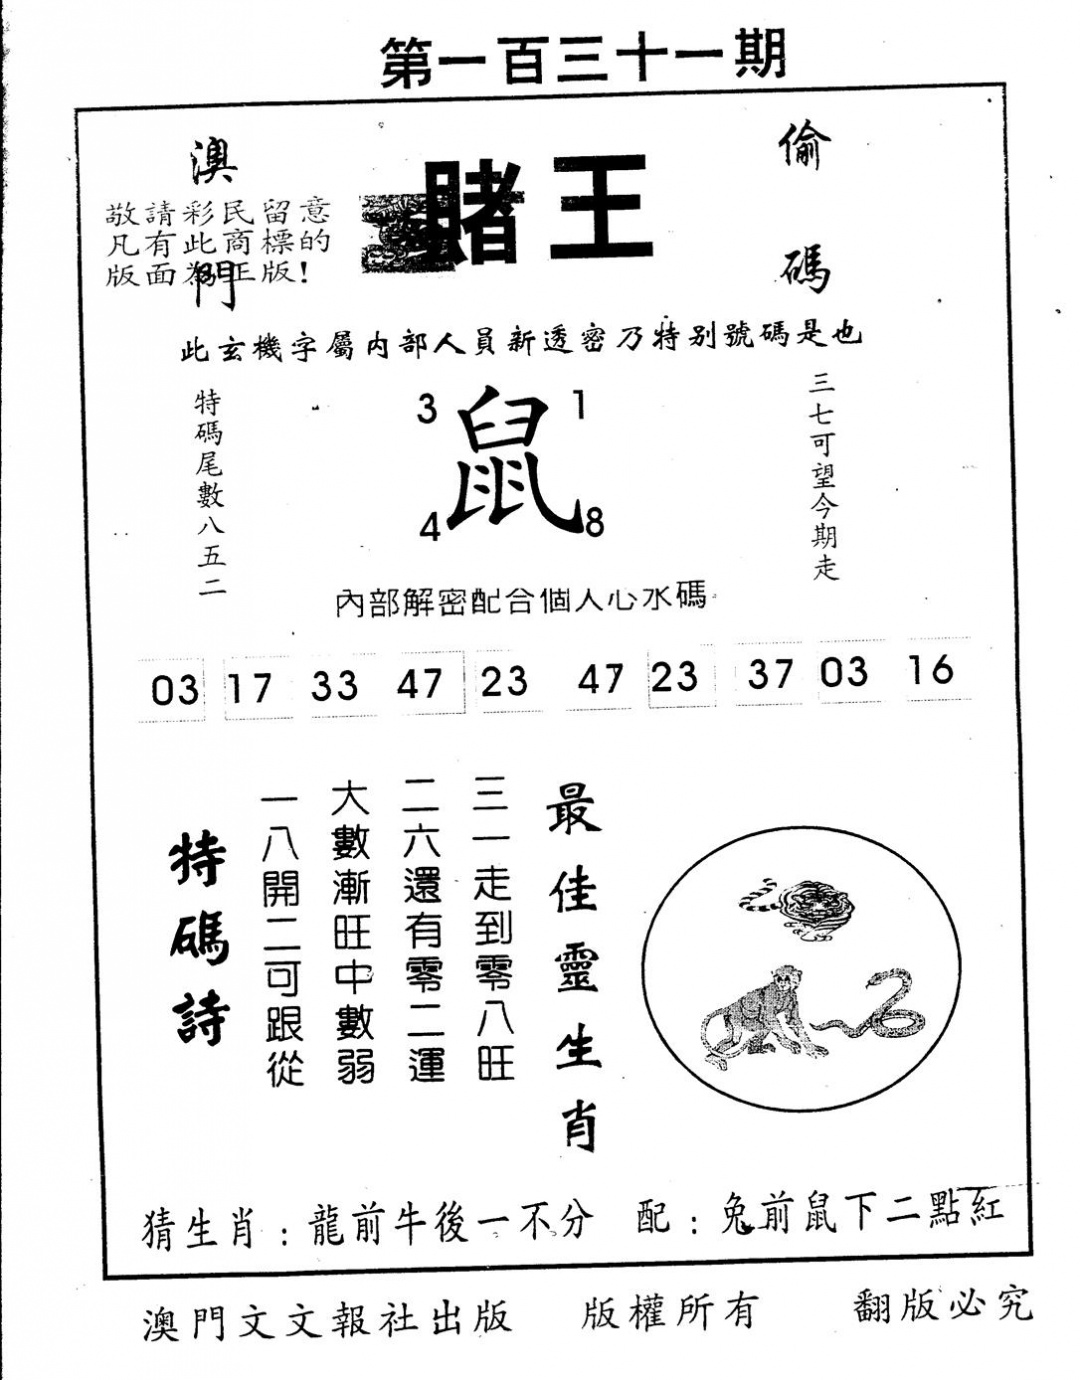 第一百三十一期
澳門
賭王
偷碼
敬請彩民留意
凡有此商標的
版面為正版!
此玄機字屬内部人員新透密乃特别號碼是也
特碼尾數八五二
3 1
鼠
4 8
三七可望今期走
内部解密配合個人心水碼
03 17 33 47 23 47 23 37 03 16
最佳靈生肖
三一走到零八旺
二六還有零二運
大數漸旺中數弱
一八開二可跟從
特碼詩
猜生肖:龍前牛後一不分 配:兔前鼠下二點紅
澳門文文報社出版 版權所有 翻版必究